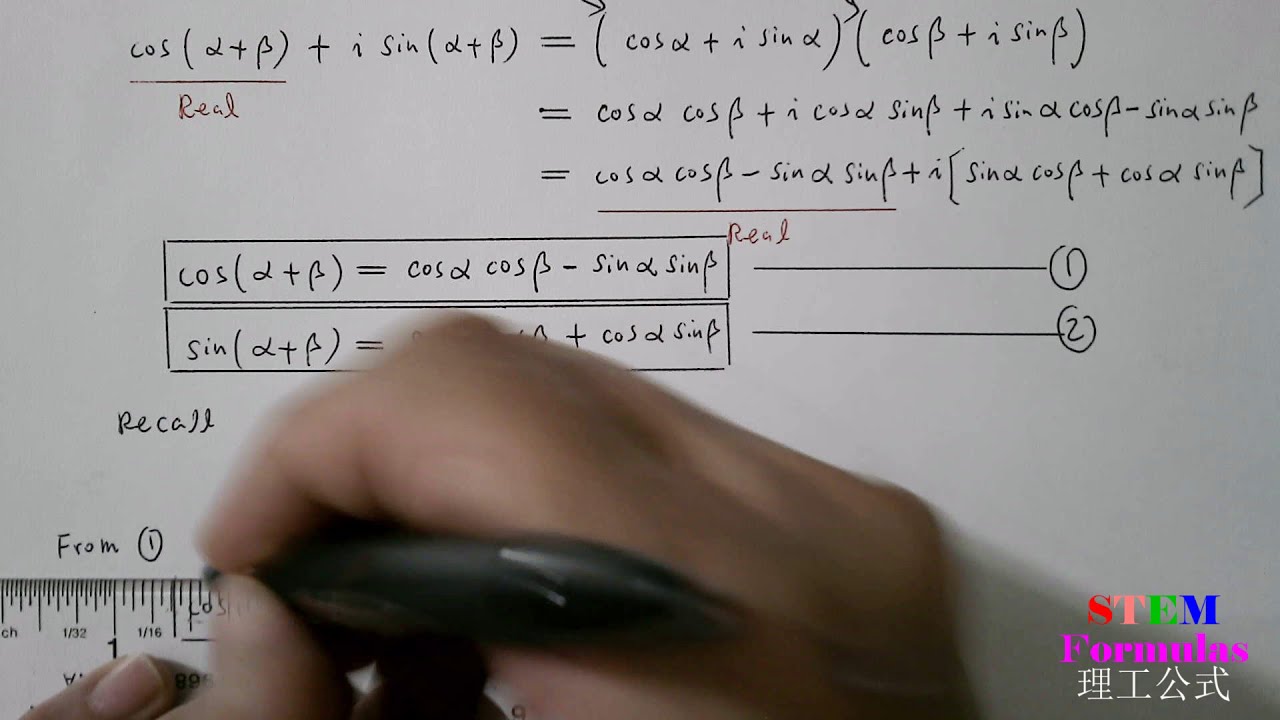 cos(α+β) + i sin(α+β) = (cosα + i sinα)(cosβ + i sinβ)
Real
= cosα cosβ + i cosα sinβ + i sinα cosβ - sinα sinβ
= cosα cosβ - sinα sinβ + i[sinα cosβ + cosα sinβ]
Real
cos(α+β) = cosα cosβ - sinα sinβ ①
sin(α+β) = + cosα sinβ ②
Recall
From ①
ch 1/32 1/16
1
STEM
Formulas
理工公式